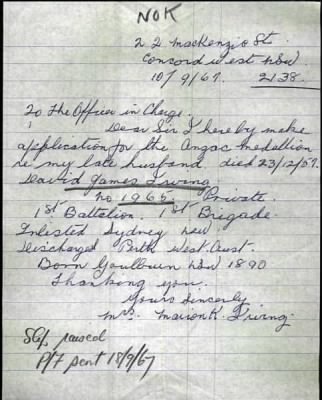 NOK
22 Mackenzie St.
Concord West NSW
10/9/67. 2138.
To The Officer in Charge.
Dear Sir I hereby make
application for the Anzac Medallion
re my late husband died 23/12/57.
David James Irving
No 1965. Private.
1st Battalion. 1st Brigade.
Enlisted Sydney NSW
Discharged Perth West Aust.
Born Goulburn NSW 1890
Thanking you.
Yours Sincerely
Mrs. Marion K. Irving.
raised
P/F sent 18/9/67